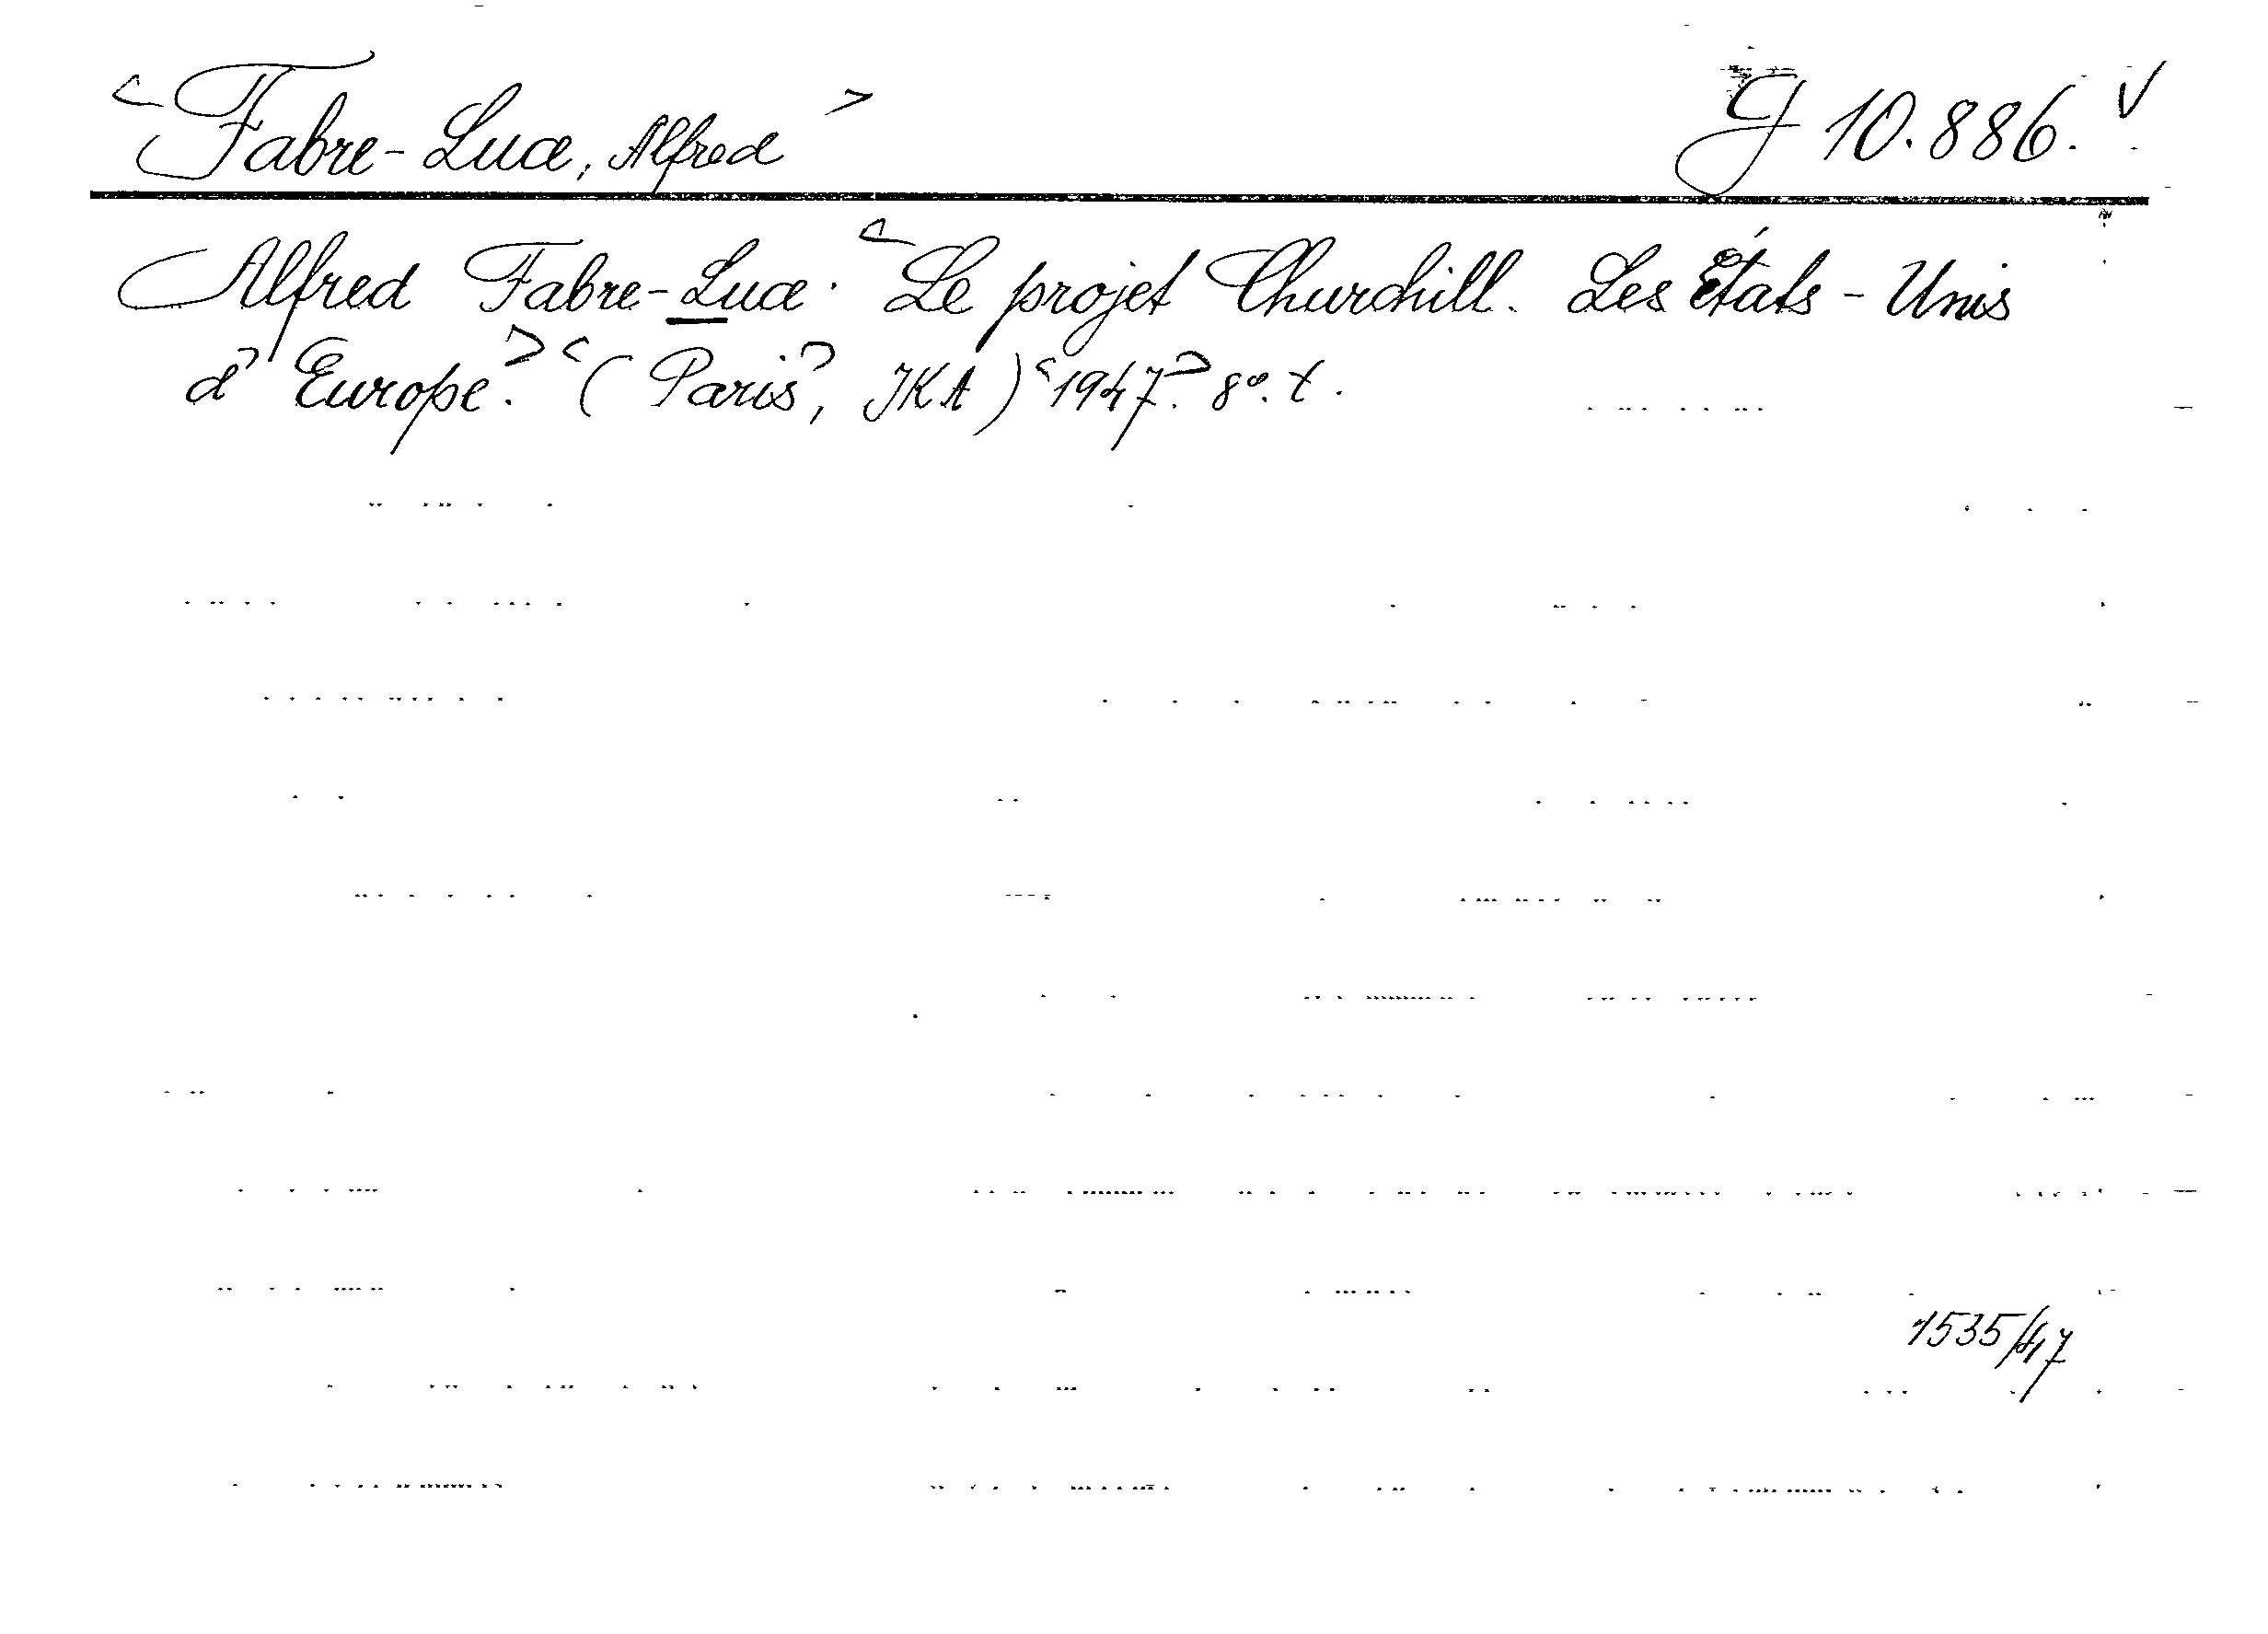 <Fabre-Luce, Alfred> J 10.886. V
Alfred Fabre-Luce. <Le projet Churchill. Les États-Unis
d'Europe.> <(Paris>, JKA) <1947.> 8°. t.
1535/47